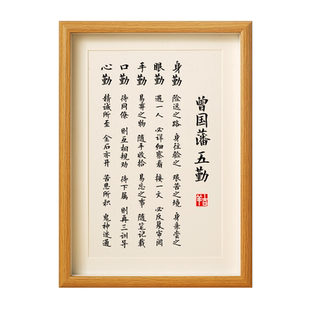 曾国藩五勤
身勤 险远之路 身往验之 艰苦之境 身亲尝之
眼勤 遇一人 必详细察看 接一文 必反复审阅
手勤 易弃之物 随手收拾 易忘之事 随笔记载
口勤 待同僚 则互相规劝 待下属 则再三训导
心勤 精诚所至 金石亦开 苦思所积 鬼神迹通